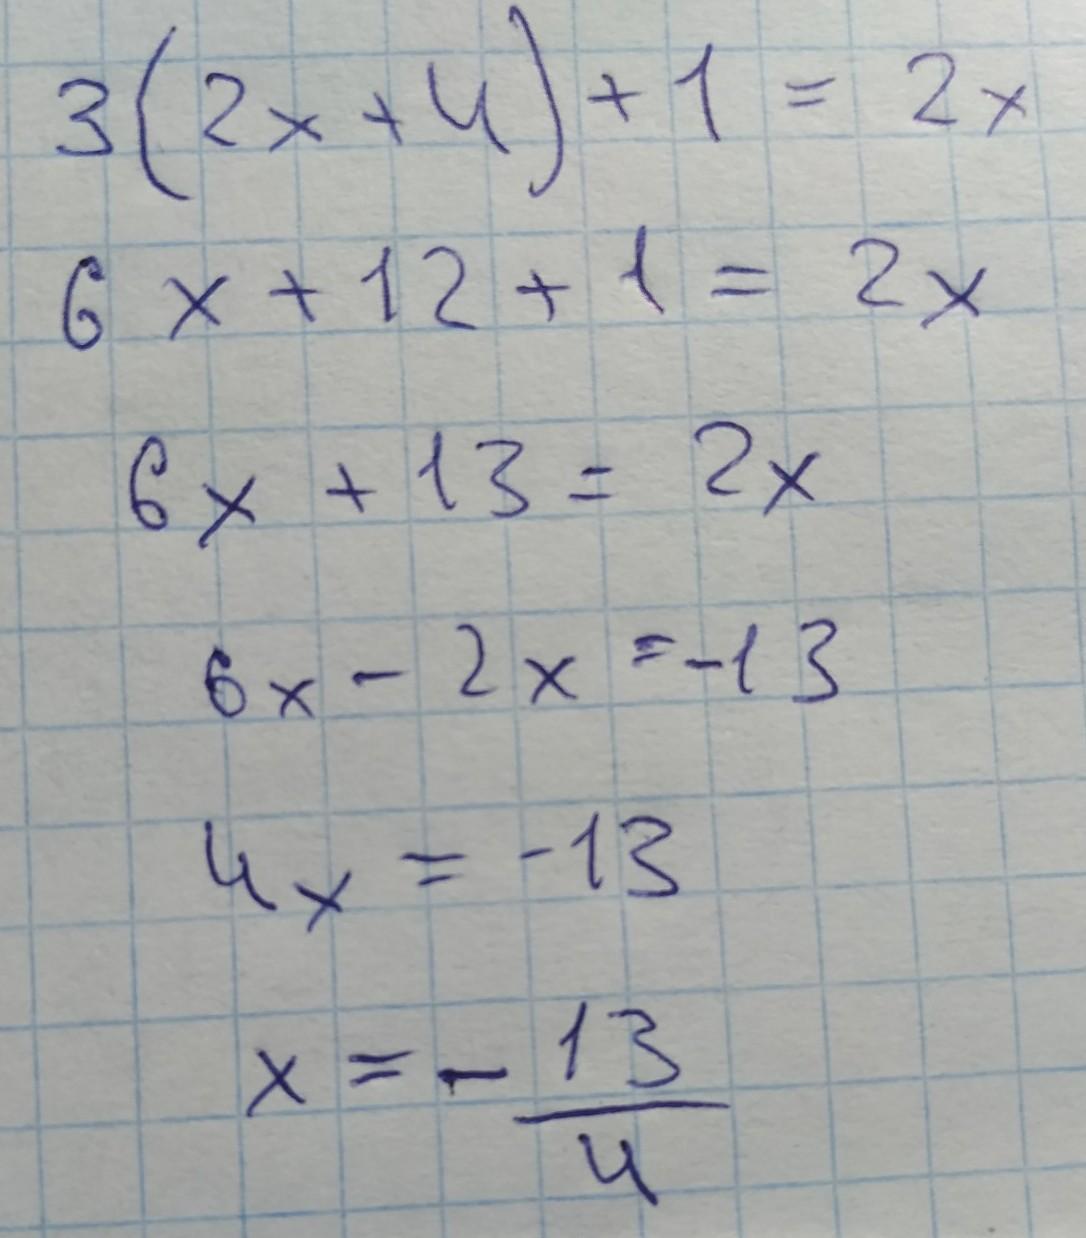 3(2x+4)+1 = 2x
6x+12+1 = 2x
6x+13 = 2x
6x-2x = -13
4x = -13
x = -13/4